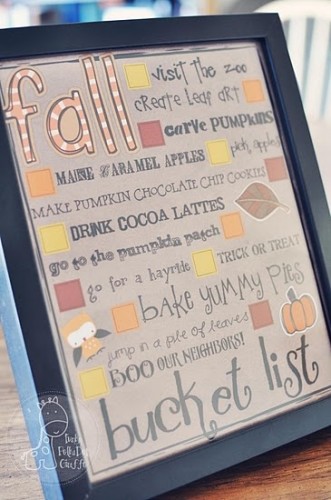 fall
visit the zoo
create leaf art
carve pumpkins
MAKE CARAMEL APPLES
pick apples
MAKE PUMPKIN CHOCOLATE CHIP COOKIES
DRINK COCOA LATTES
go to the pumpkin patch
TRICK OR TREAT
go for a hayride
bake yummy pies
jump in a pile of leaves
BOO OUR NEIGHBORS!
bucket list
Polka Dot
Giraffe